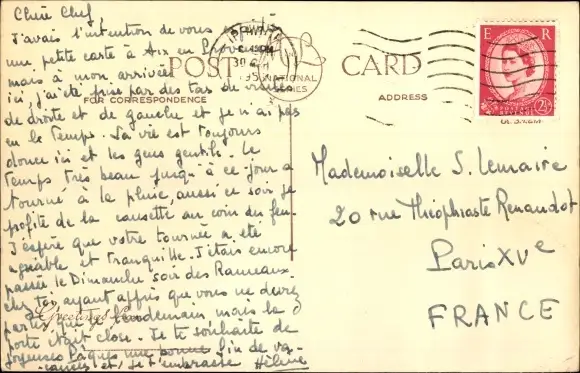 Chère Chef,
J'avais l'intention de vous
une petite carte à Aix en Provence
mais à mon arrivée
ici j'ai été prise par des tas de visites
de droite et de gauche et je n'ai pas
eu le temps. La vie est toujours
douce ici et les gens gentils. Le
temps très beau jusqu'à ce jour a
tourné à la pluie, aussi ce soir je
profite de la causette au coin du feu.
J'espère que votre tournée a été
agréable et tranquille. J'étais encore
passée le Dimanche soir des Rameaux
chez toi ayant appris que vous ne deviez
partir que le lendemain mais la
porte était close. Je te souhaite de
joyeuses Pâques une bonne fin de va-
cances et je t'embrasse Hélène
POST CARD
FOR CORRESPONDENCE
ADDRESS
NATIONAL
SERIES
Greetings
E R
2½
Mademoiselle S. Lemaire
20 rue Théophraste Renaudot
Paris XVe
FRANCE